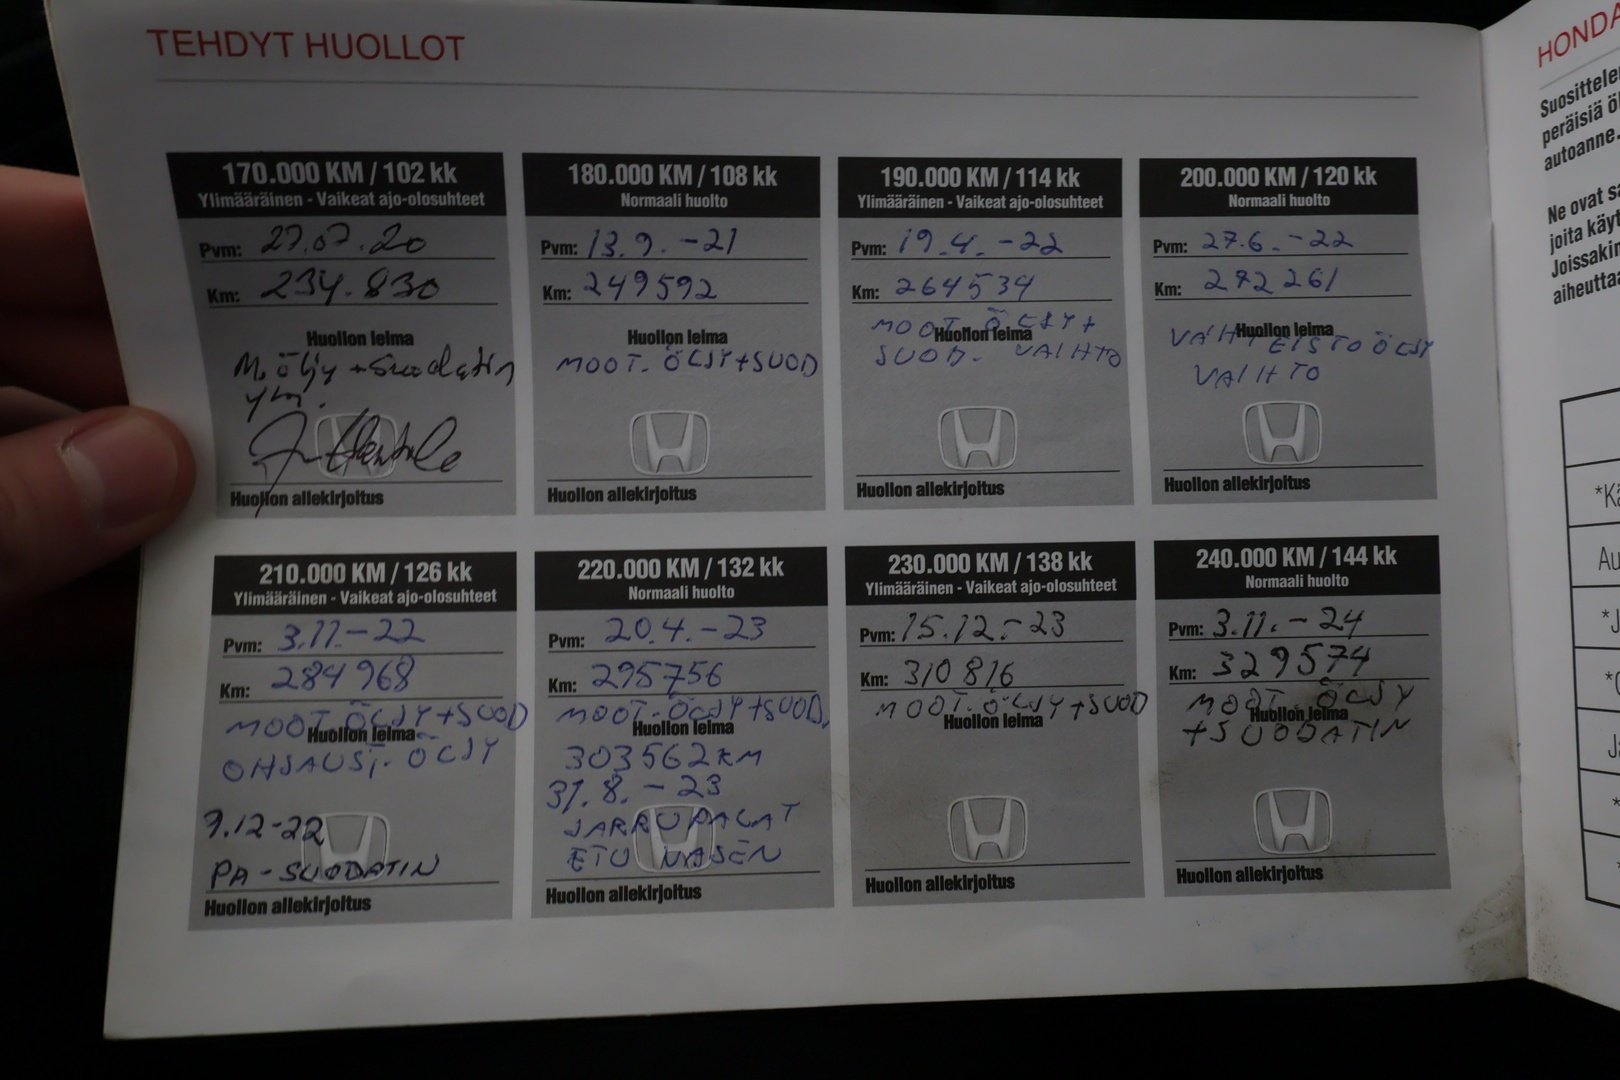 TEHDYT HUOLLOT
170.000 KM / 102 kk
Ylimääräinen - Vaikeat ajo-olosuhteet
Pvm: 27.07.20
Km: 234.830
Huollon leima
M.öljy + Suodatin
ym.
Huollon allekirjoitus
180.000 KM / 108 kk
Normaali huolto
Pvm: 13.9.-21
Km: 249592
Huollon leima
MOOT. ÖLJY+SUOD
Huollon allekirjoitus
190.000 KM / 114 kk
Ylimääräinen - Vaikeat ajo-olosuhteet
Pvm: 19.4.-22
Km: 264534
MOOT. ÖLJY+
Huollon leima
SUOD. VAIHTO
Huollon allekirjoitus
200.000 KM / 120 kk
Normaali huolto
Pvm: 27.6.-22
Km: 272261
Huollon leima
VAIHTEISTOÖLJY
VAIHTO
Huollon allekirjoitus
210.000 KM / 126 kk
Ylimääräinen - Vaikeat ajo-olosuhteet
Pvm: 3.11.-22
Km: 284968
MOOT.ÖLJY+SUOD
Huollon leima
OHJAUST. ÖLJY
9.12-22
PA-SUODATIN
Huollon allekirjoitus
220.000 KM / 132 kk
Normaali huolto
Pvm: 20.4.-23
Km: 295756
MOOT.ÖLJY+SUOD.
Huollon leima
303562KM
31.8.-23
JARRUPALAT
ETU VASEN
Huollon allekirjoitus
230.000 KM / 138 kk
Ylimääräinen - Vaikeat ajo-olosuhteet
Pvm: 15.12.-23
Km: 310816
MOOT.ÖLJY+SUOD
Huollon leima
Huollon allekirjoitus
240.000 KM / 144 kk
Normaali huolto
Pvm: 3.11.-24
Km: 329574
MOOT. ÖLJY
Huollon leima
+SUODATIN
Huollon allekirjoitus
HONDA
peräisiä
autoanne.
Ne ovat
joita